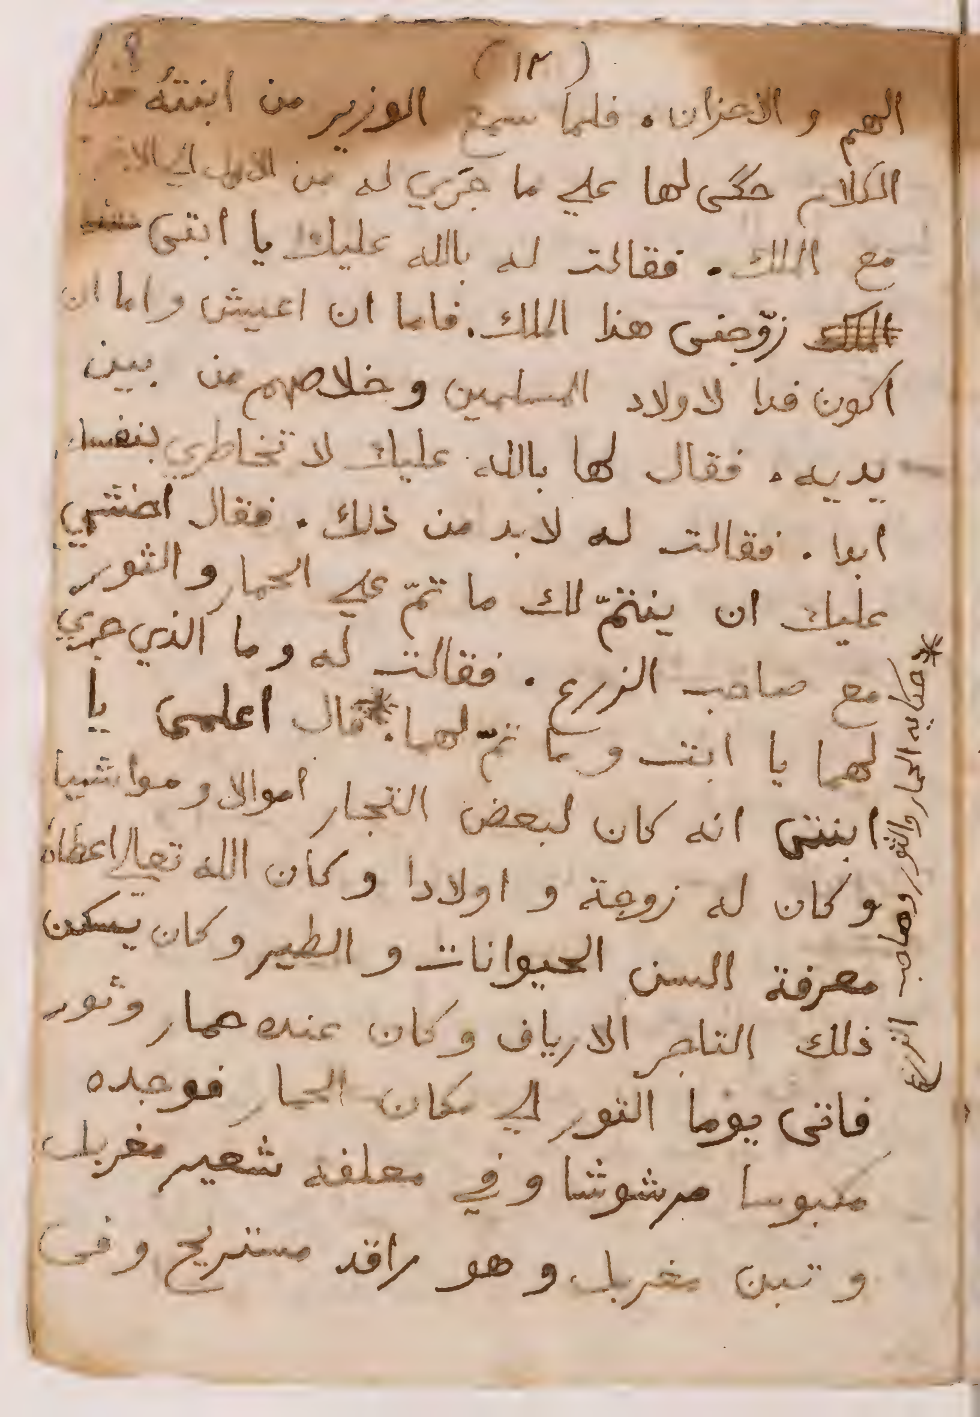 (١٢)
الهم و الاحزان . فلما سمع الوزير من ابنته هذا
الكلام حكى لها علي ما جري له من الاول الي الاخر
مع الملك . فقالت له بالله عليك يا ابتى
زوّجنى هذا الملك . فاما ان اعيش واما ان
اكون فدا لاولاد المسلمين وخلاصهم من بين
يديه . فقال لها بالله عليك لا تخاطري بنفسك
ابدا . فقالت له لا بد من ذلك . فقال اخشي
عليك ان يتمّ لك ما تمّ علي الحمار و الثور
مع صاحب الزرع . فقالت له وما الذي جري
لهما يا ابت وما تمّ لهما . * قال اعلمى يا
ابنتى انه كان لبعض التجار اموالا ومواشيا
وكان له زوجة و اولادا وكان الله تعالي اعطاه
معرفة السن الحيوانات و الطير وكان يسكن
ذلك التاجر الارياف وكان عنده حمار وثور
فاتى يوما الثور الي مكان الحمار فوجده
مكبوسا مرشوشا و في معلفه شعير مغربل
و تبن مغربل و هو راقد مستريح و فى
* حكايه الحمار والثور وصاحب الزرع